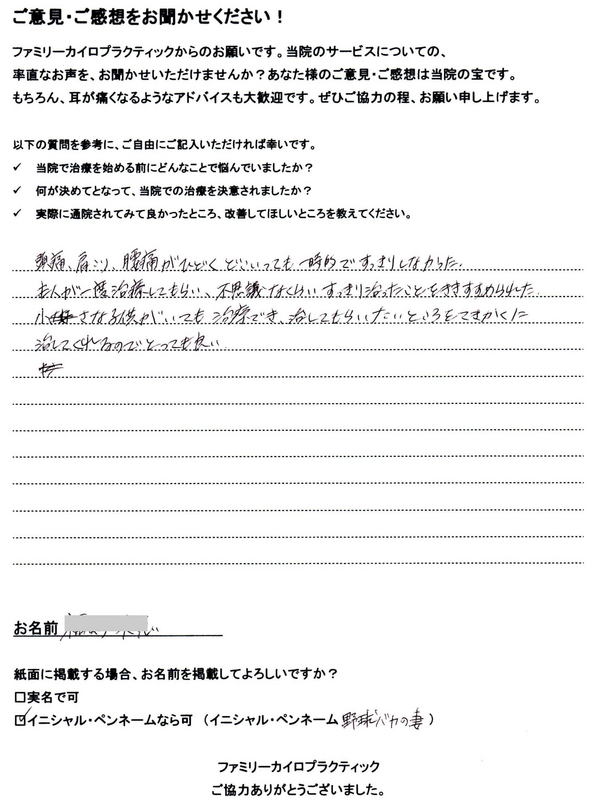 ご意見・ご感想をお聞かせください！
ファミリーカイロプラクティックからのお願いです。当院のサービスについての、
率直なお声を、お聞かせいただけませんか？あなた様のご意見・ご感想は当院の宝です。
もちろん、耳が痛くなるようなアドバイスも大歓迎です。ぜひご協力の程、お願い申し上げます。
以下の質問を参考に、ご自由にご記入いただければ幸いです。
✓ 当院で治療を始める前にどんなことで悩んでいましたか？
✓ 何が決めてとなって、当院での治療を決意されましたか？
✓ 実際に通院されてみて良かったところ、改善してほしいところを教えてください。
頭痛、肩こり、腰痛がひどく どこいっても 一時的ですっきりしなかった。
主人が一度治療してもらい、不思議なくらい すっきり治ったことをききすすめられました。
小さな子供がいても 治療でき、治してもらいたいところをてきかくに
治してくれるのでとっても良い
お名前
紙面に掲載する場合、お名前を掲載してよろしいですか？
□実名で可
☑イニシャル・ペンネームなら可 （イニシャル・ペンネーム 野球バカの妻 ）
ファミリーカイロプラクティック
ご協力ありがとうございました。